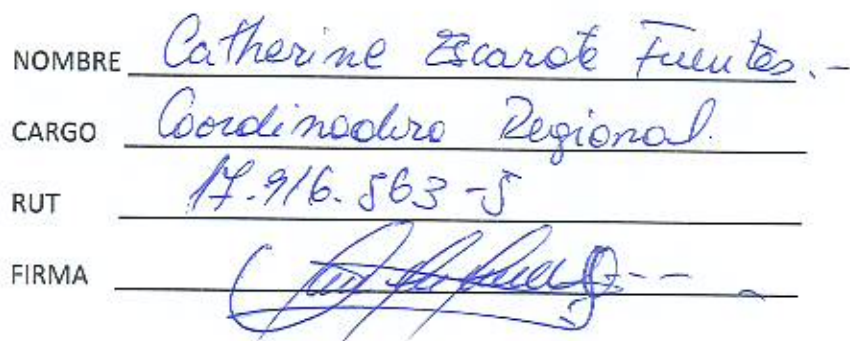 NOMBRE Catherine Escarate Fuentes.-
CARGO Coordinadora Regional.
RUT 17.916.563-5
FIRMA